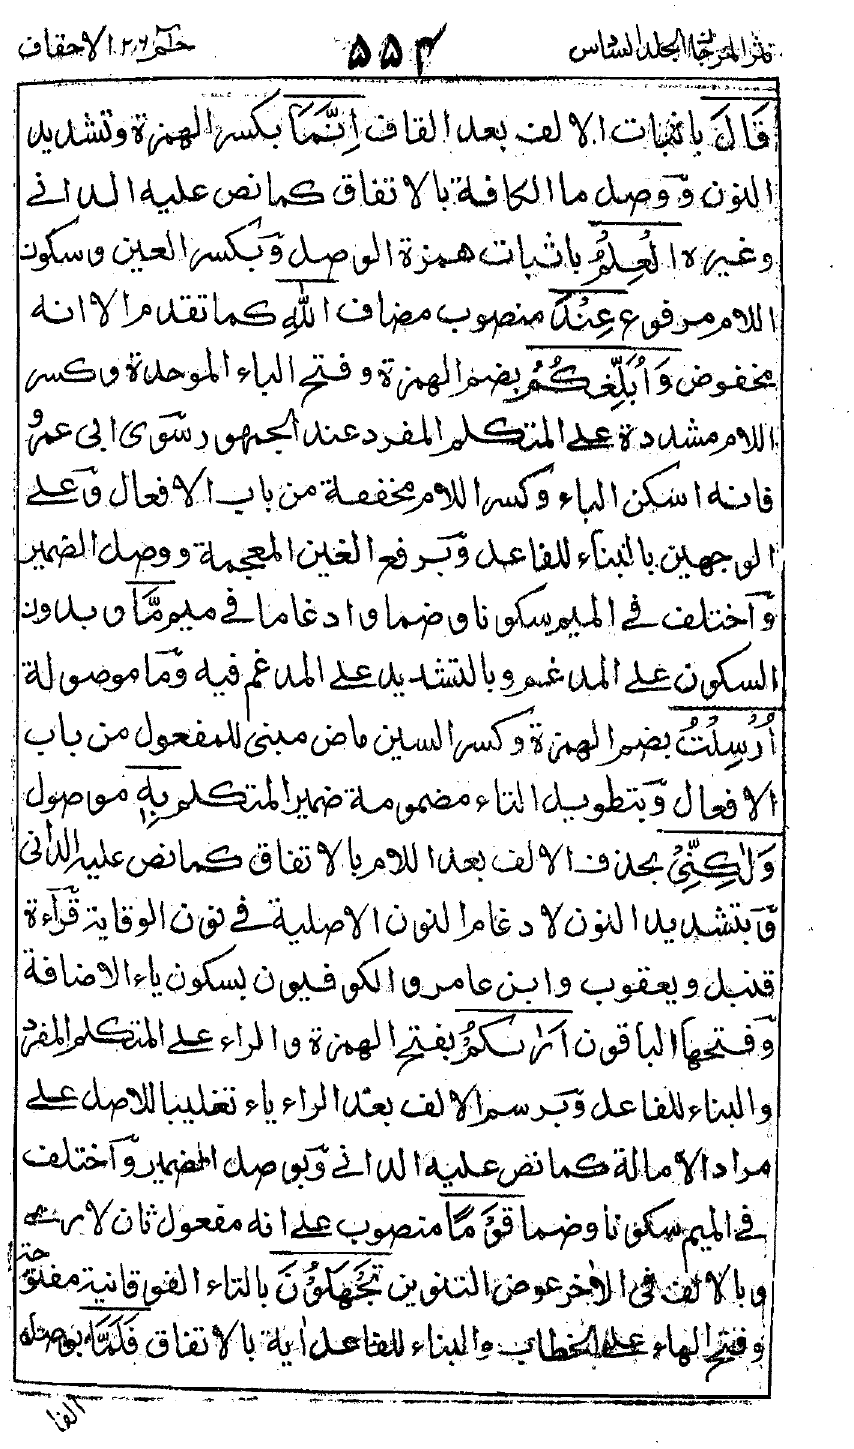 نثر المرجان المجلد السادس ۵۵۴ حٰم ۲۶ الاحقاف
قَالَ باثبات الالف بعد القاف اِنَّمَا بكسر الهمزة وتشديد
النون وَوصل ما الكافة بالاتفاق كما نص عليه الدانى
وغيره الْعِلْمُ باثبات همزة الوصل وَبكسر العين وسكون
اللام مرفوع عِنْدَ منصوب مضاف اللّٰهِ كما تقدم الا انه
مخفوض وَاُبَلِّغُكُمْ بضم الهمزة وفتح الباء الموحدة وكسر
اللام مشددة على المتكلم المفرد عند الجمهور سَوى ابى عمرو
فانه اسكن الباء وكسر اللام مخففة من باب الافعال وَعلى
الوجهين بالبناء للفاعل وَبرفع الغين المعجمة ووصل الضمير
وَاختلف فى الميم سكونا وضما وادغاما فى ميم مَّا وبدون
السكون على المدغم وبالتشديد على المدغم فيه وَما موصولة
اُرْسِلْتُ بضم الهمزة وكسر السين ماض مبنى للمفعول من باب
الافعال وَبتطويل التاء مضمومة ضمير المتكلم بِهٖ موصول
وَلٰكِنِّىْ بحذف الالف بعد اللام بالاتفاق كما نص عليه الدانى
وَبتشديد النون لادغام النون الاصلية فى نون الوقاية قَرأءة
قنبل ويعقوب وابن عامر والكوفيون بسكون ياء الاضافة
وَفتحها الباقون اَرٰىكُمْ بفتح الهمزة والراء على المتكلم المفرد
والبناء للفاعل وَبرسم الالف بعد الراء ياء تغليبا للاصل على
مراد الامالة كما نص عليه الدانى وَبوصل الضمير وَاختلف
فى الميم سكونا وضما قَوْمًا منصوب على انه مفعول ثان لارى
وبالالف فى الاخر عوض التنوين تَجْهَلُوْنَ بالتاء الفوقانية مفتوحة
وفتح الهاء على الخطاب والبناء للفاعل اٰية بالاتفاق فَلَمَّا بوصل
الفا